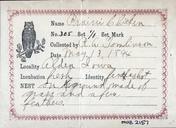 Name
No. 305 Set 1/4 Mark
Collected by Tomlinson
Date May 13, 1894
Locality Alden Iowa
Incubation fresh Identity
NEST In ground made of
grass and a few
feathers